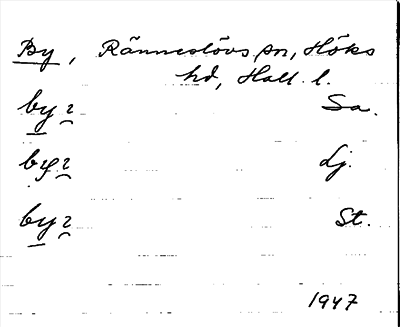 By, Ränneslövs sn, Höks
hd, Hall. l.
by2 Sa.
by2 Lj.
by2 St.
1947